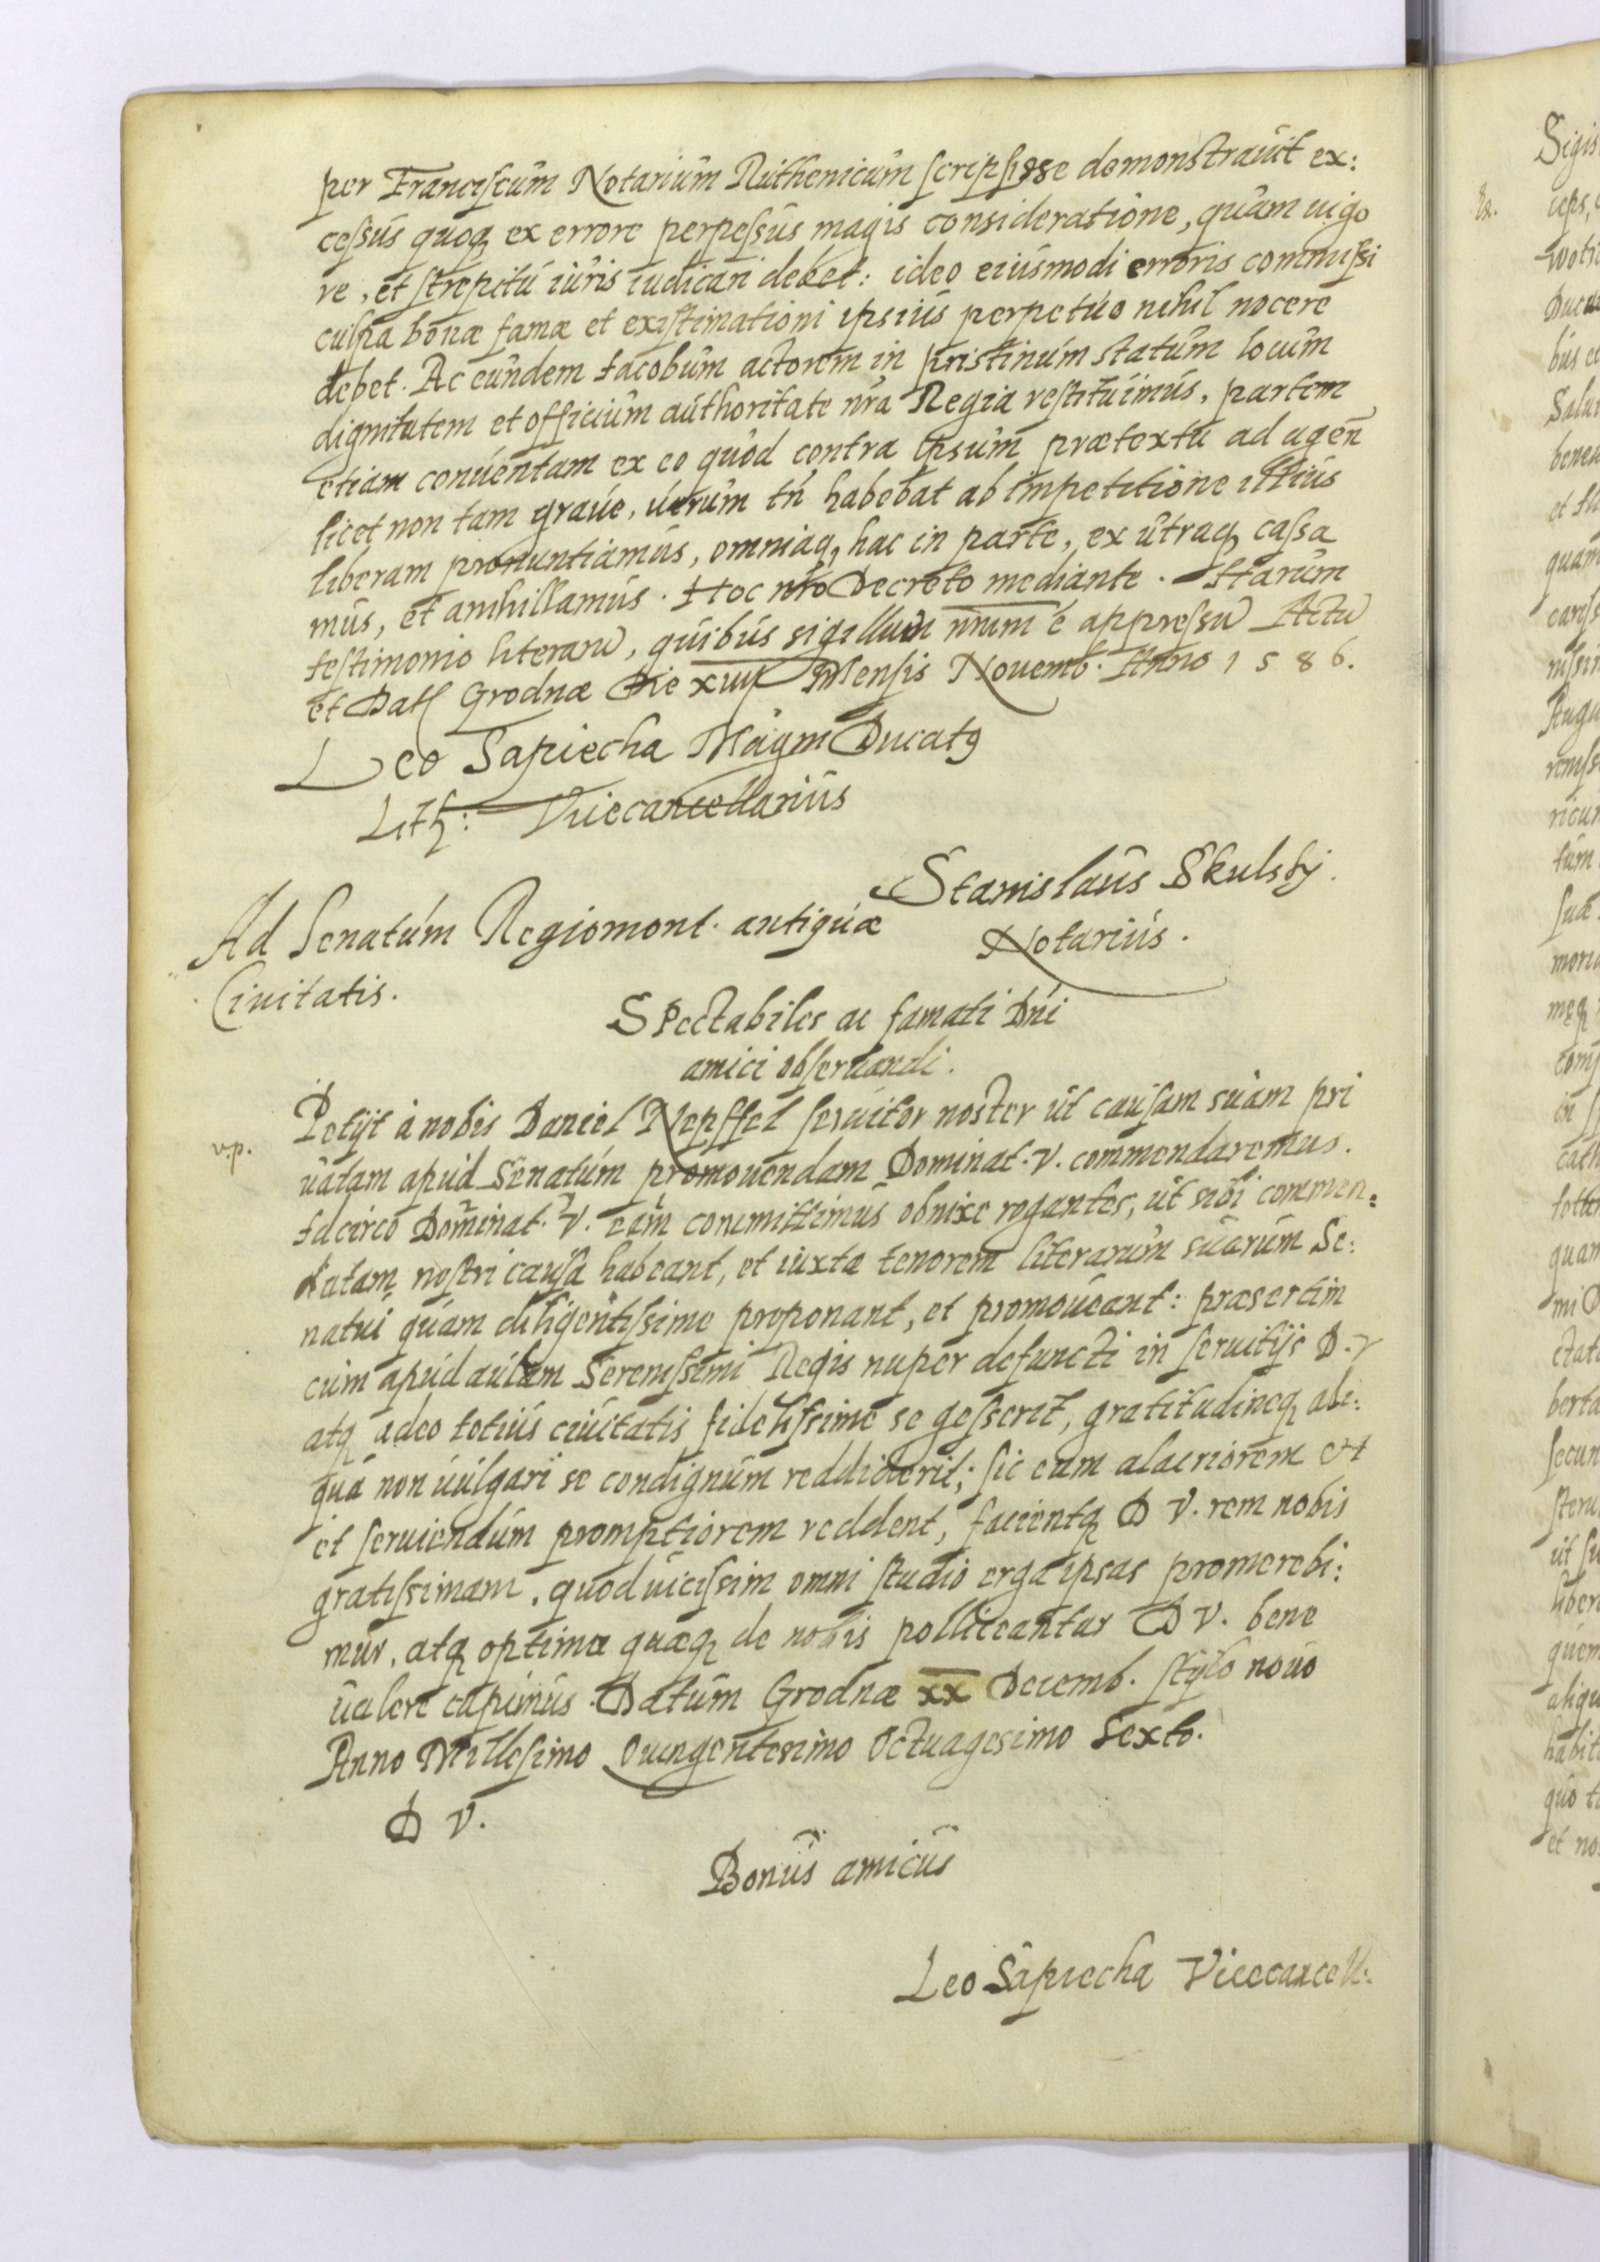 per Franciscum Notarium Ruthenicum scripsisse demonstravit ex:
cessus quoq ex errore perpessus magis consideratione, quàm uigo
re, et strepitu iuris iudicari debet: ideo eiusmodi erroris commissi
culpa bonæ famæ et existimationi ipsius perpetuo nihil nocere
debet. Ac eundem Iacobum actorem in pristinum statum locum
dignitatem et officium authoritate nrâ Regia restituimus, partem
etiam conuentam ex eo quod contra ipsum prætextu ad agen
licet non tam graue, uerum tn habebat ab impetitione illius
liberam pronuntiamus, omniaq hac in parte, ex utraq cassa
mus, et annihillamus. Hoc nro Decreto mediante. Harum
testimonio literaru, quibus sigillum nrum é appressu Actu
et Dat Grodnæ Die Mensis Nouemb. Anno 1586.
Leo Sapiecha Magni Ducatg
Lith: Vicecancellarius
Stanislaus Skulsky.
Notarius.
Ad Senatum Regiomont. antiquæ
Ciuitatis.
Spectabiles ac famati Dni
amici obseruandi.
v.p.
Petijt à nobis Daniel Nepffel seruitor noster ut causam suam pri
uatam apud Senatum promouendam Dominat. V. commendaremus.
Idcirco Dominat. V. eam committimus obnixe rogantes, ut sibi commen:
datam nostri causa habeant, et iuxta tenorem literarum suarum Se:
natui quam diligentissime proponant, et promoueant: præsertim
cum apud aulam Serenissimi Regis nuper defuncti in seruitijs D. V
atq adeo totius ciuitatis fidelissime se gesserit, gratitudineq ali:
quâ non uulgari se condignum reddiderit; sic eum alacriorem et
et seruiendum promptiorem reddent, facientq D V. rem nobis
gratissimam, quod uicissim omni studio erga ipsas promerebi:
mur, atq optima quæq de nobis polliceantur D V. bene
ualere cupimus. Datum Grodnæ xx Decemb. stylo nouo
Anno Millesimo Quingentesimo Octuagesimo Sexto.
D V.
Bonus amicus
Leo Sapiecha Vicecancell.